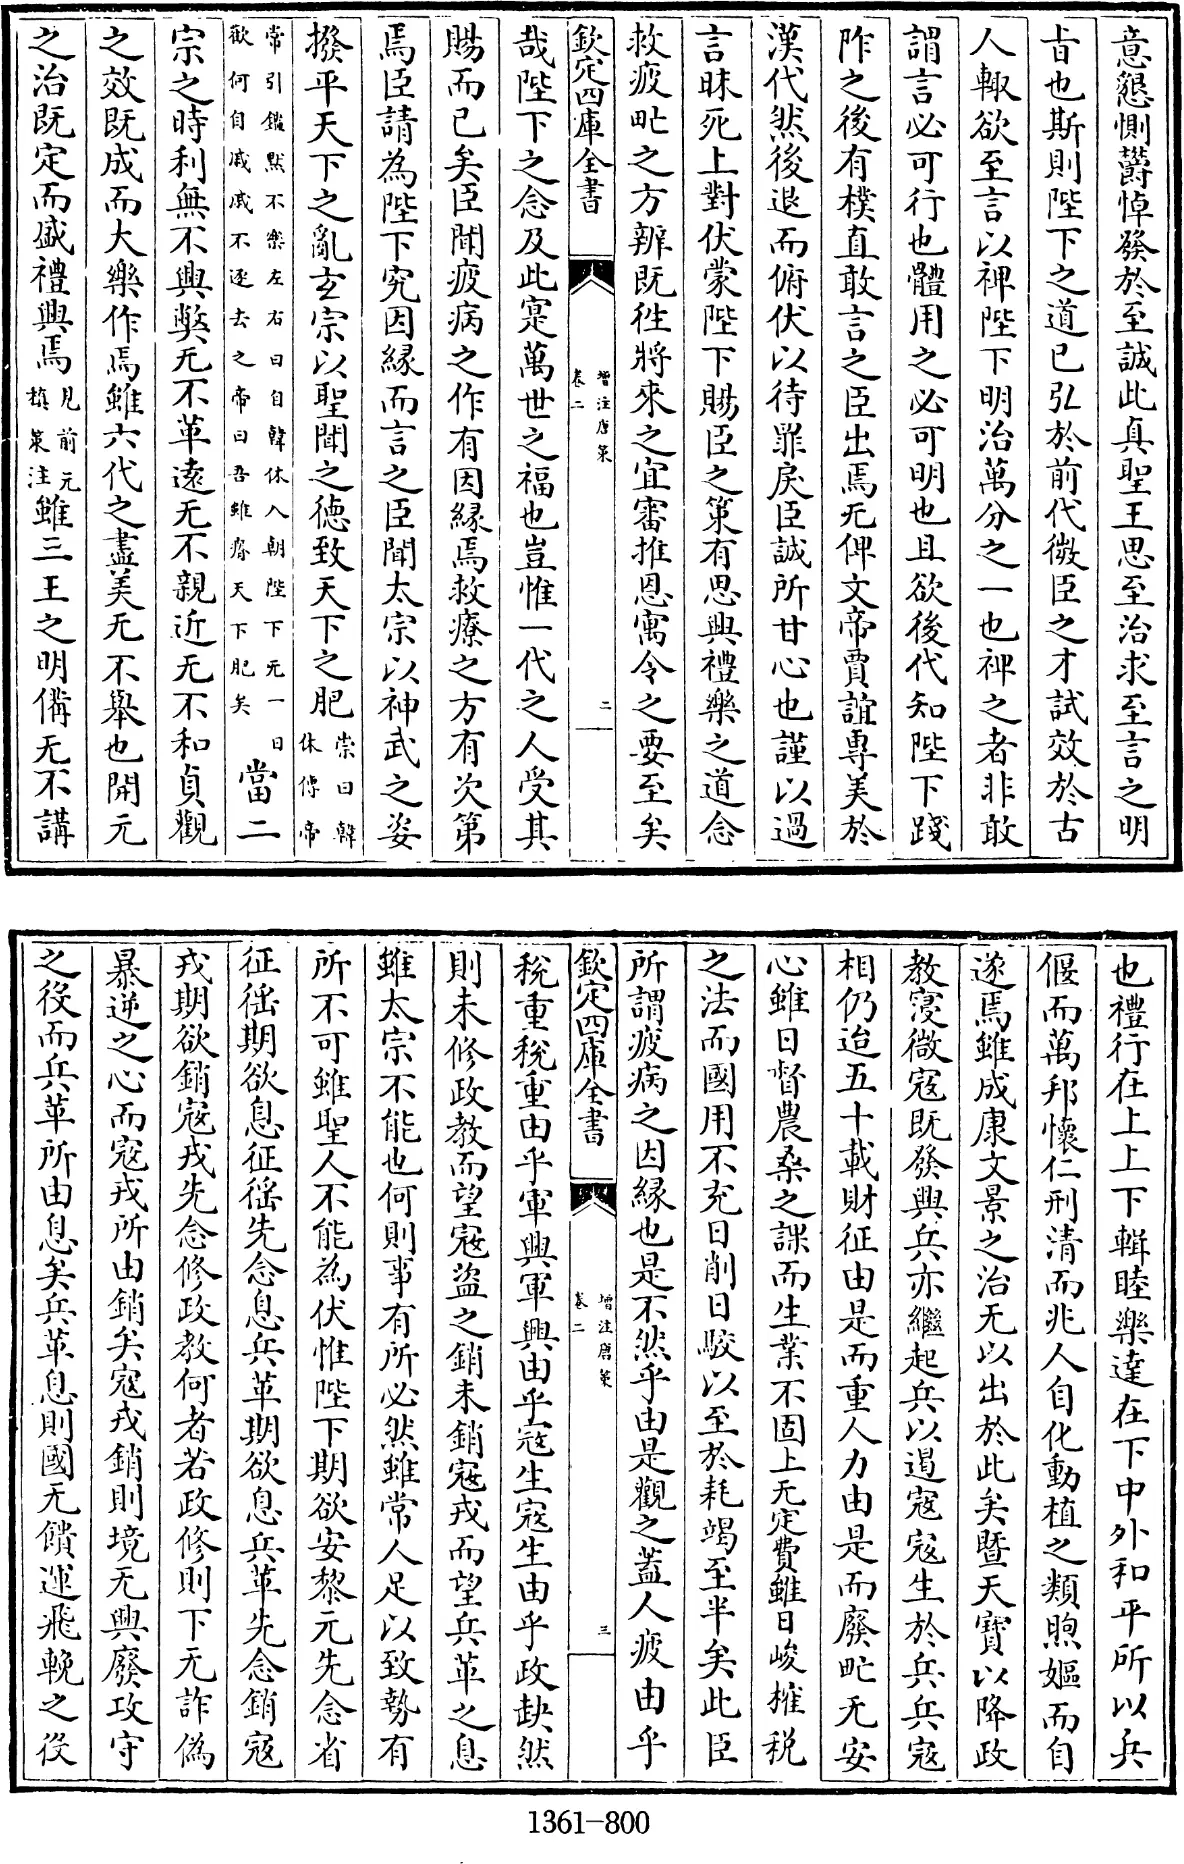 意懇惻欝悼發於至誠此真聖王思至治求至言之明
旨也斯則陛下之道已弘於前代微臣之才試效於古
人輙欲至言以裨陛下明治萬分之一也裨之者非敢
謂言必可行也體用之必可明也且欲後代知陛下踐
阼之後有樸直敢言之臣出焉无俾文帝賈誼專美於
漢代然後退而俯伏以待罪戾臣誠所甘心也謹以過
言昧死上對伏蒙陛下賜臣之策有思興禮樂之道念
救疲甿之方辨既徃將來之宜審推恩寓令之要至矣
欽定四庫全書
增注唐策
卷二
二
哉陛下之念及此寔萬世之福也豈惟一代之人受其
賜而已矣臣聞疲病之作有因縁焉救療之方有次第
焉臣請為陛下究因縁而言之臣聞太宗以神武之姿
撥平天下之亂玄宗以聖聞之德致天下之肥
崇曰韓
休傳帝
常引鑑默不樂左右曰自韓休入朝陛下无一日
歡何自戚戚不逐去之帝曰吾雖瘠天下肥矣
當二
宗之時利無不興弊无不革遠无不親近无不和貞觀
之效既成而大樂作焉雖六代之盡美无不舉也開元
之治既定而盛禮興焉
見前元
稹策注
雖三王之明備无不講
也禮行在上上下輯睦樂達在下中外和平所以兵
偃而萬邦懷仁刑清而兆人自化動植之類煦嫗而自
遂焉雖成康文景之治无以出於此矣暨天寶以降政
教寖微寇既發興兵亦繼起兵以遏寇寇生於兵兵寇
相仍迨五十載財征由是而重人力由是而廢甿无安
心雖日督農桑之課而生業不固上无定費雖日峻榷稅
之法而國用不充日削日朘以至於耗竭至半矣此臣
所謂疲病之因縁也是不然乎由是觀之蓋人疲由乎
欽定四庫全書
增注唐策
卷二
三
稅重稅重由乎軍興軍興由乎寇生寇生由乎政缺然
則未修政教而望寇盜之銷未銷寇戎而望兵革之息
雖太宗不能也何則事有所必然雖常人足以致勢有
所不可雖聖人不能為伏惟陛下期欲安黎元先念省
征徭期欲息征徭先念息兵革期欲息兵革先念銷寇
戎期欲銷寇戎先念修政教何者若政修則下无詐偽
暴逆之心而寇戎所由銷矣寇戎銷則境无興廢攻守
之役而兵革所由息矣兵革息則國无饋運飛輓之役
1361-800